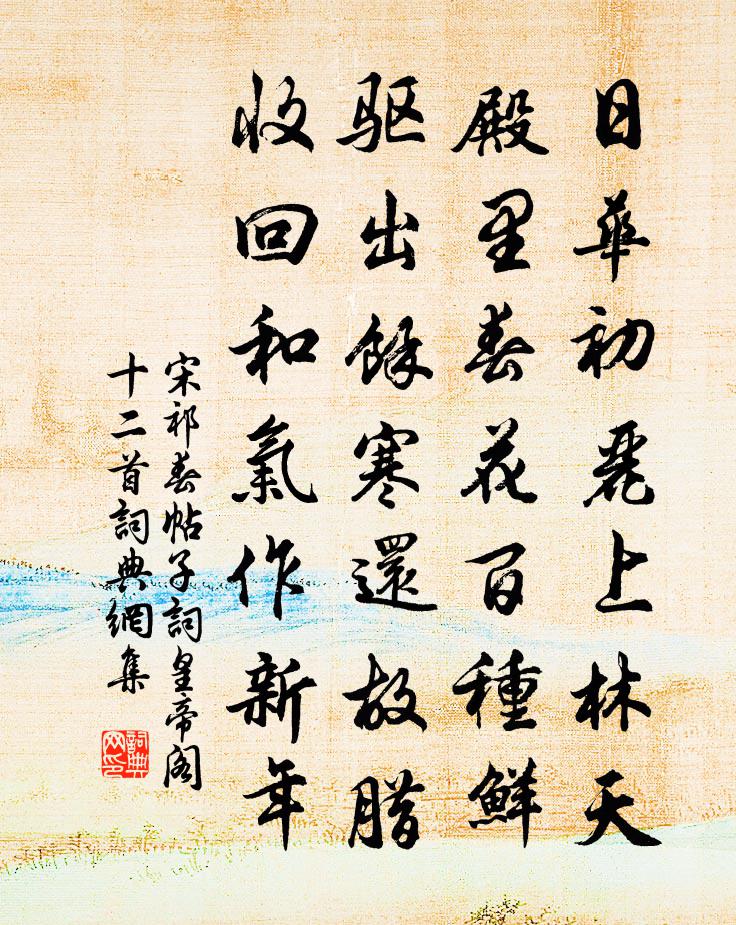 日華初麗上林天
殿里春花百種鮮
驱出餘寒還故腊
收回和氣作新年
宋祁春帖子詞皇帝阁
十二首詞典網集
詞典网印